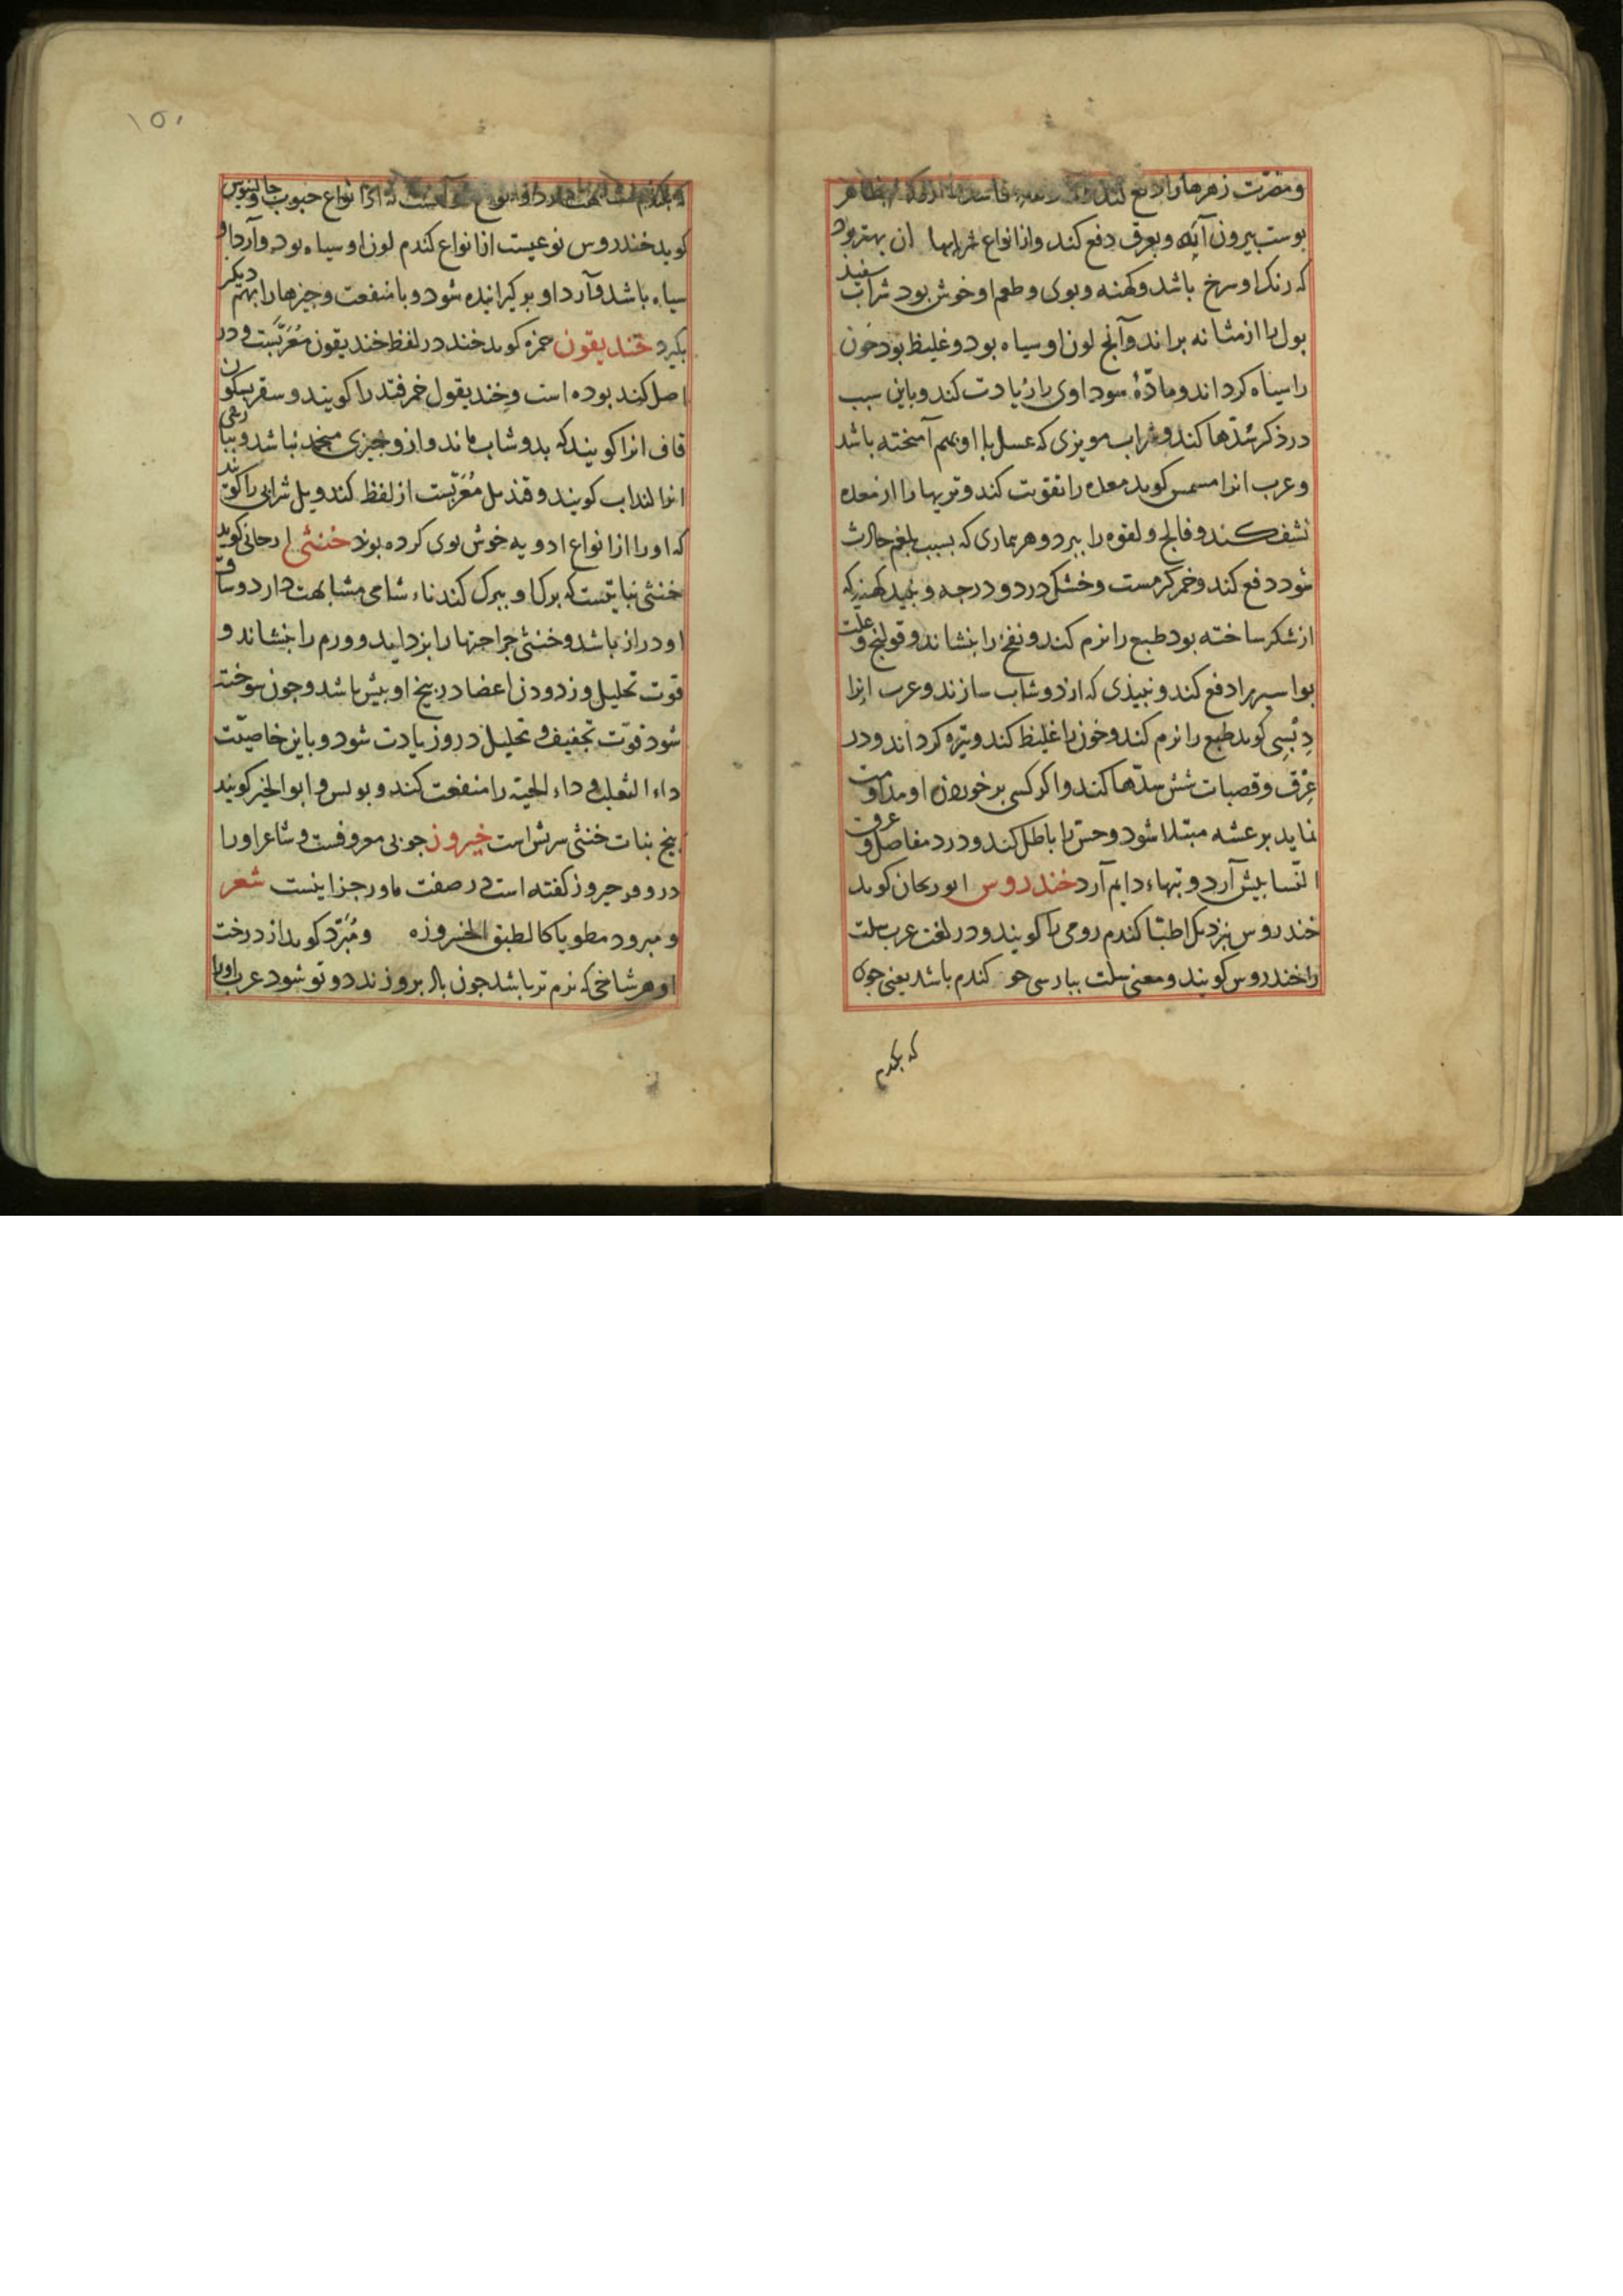 ومضرّت زهرها را دفع کند
بوست بیرون آید وبعرق دفع کند وازانواع شرابها ان بهتر بود
که رنک او سرخ باشد وکهنه وبوی وطعم او خوش بود شراب سفید
بول را از مثانه براند وآنج لون او سیاه بود وغلیظ بود خون
را سیاه کرداند ومادّهٔ سوداوی را زیادت کند وباین سبب
در ذکر سدّها کند وشراب مویزی که عسل با او بهم آمخته باشد
وعرب انرا مسمس کوید معده را تقویت کند وتریها را از معده
نشف کند وفالج ولقوه را ببرد وهر بماری که بسبب بلغم حادث
شود دفع کند وخمر کرمست وخشک در دو درجه ونبید کهنه که
از شکر ساخته بود طبع را نرم کند ونفخ را بنشاند وقولنج و علت
بواسیر را دفع کند ونبیذی که از دوشاب سازند وعرب انرا
دِبْسِی کوید طبع را نرم کند وخون را غلیظ کند وتیره کرداند ودر
عِرْق وقصبات شش سدّها کند واکر کسی بر خوردن او مداومت
نماید برعشه مبتلا شود وحس را باطل کند ودرد مفاصل و عرق
النّسا بیش آرد وتبهاء دایم آرد خندروس ابوریحان کوید
خندروس بنزدیک اطبّا کندم رومی را کویند ودر لغت عرب سلت
را خندروس کویند ومعنی سلت ببارسی جو کندم باشد یعنی جوی
که بکندم
که بکندم مشابهت دارد از انواع حبوب وجالینوس
کوید خندروس نوعیست از انواع کندم لون او سیاه بود وآرد او
سیاه باشد وآرد او بو کیرانیده شود وبا منفعت وچیزها را بهم دیکر
بکیرد خندیقون حمزه کوید خند در لفظ خندیقون مُعَرَّبَست ودر
اصل کند بوده است وخندیقول خمر قند را کویند وسقر بسکون
قاف انرا کویند که بدوشاب ماند وازو چیزی منجمد نباشد وببارسی
انرا لنداب کویند وقندیل مُعَرَّبست از لفظ کند ویل شرابی را کویند
که او را از انواع ادویه خوش بوی کرده بوند خنثی ارجانی کوید
خنثی نباتیست که برک او ببرک کندناء شامی مشابهت دارد وساق
او دراز باشد وخنثی جراحتها را بزداید وورم را بنشاند و
قوت تحلیل وزدودن اعضا در بیخ او بیش باشد وجون سوخته
شود قوّت تجفیف وتحلیل درو زیادت شود وباین خاصیّت
داء الثعلب وداء الحیّه را منفعت کند وبولس وابو الخیر کویند
بیخ نبات خنثی سرش است خیروز جوبی معروفست وشاعر او را
در وقر خیروز کفته است در صفت مار رجز اینست شعر
ومبرود مطویا کالطبق الخیروزه ومُبَرّد کوید از درخت
او هر شاخی که نرم تر باشد جون باد برو زند دوتو شود عرب او را